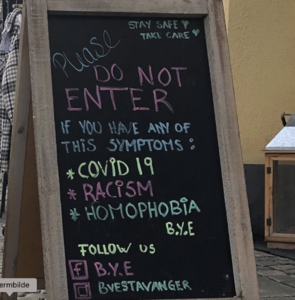 STAY SAFE
TAKE CARE
Please
DO NOT
ENTER
IF YOU HAVE ANY OF
THIS SYMPTOMS:
*COVID 19
*RACISM
*HOMOPHOBIA
B.Y.E
FOLLOW US
f B.Y.E
BYESTAVANGER
ermbilde